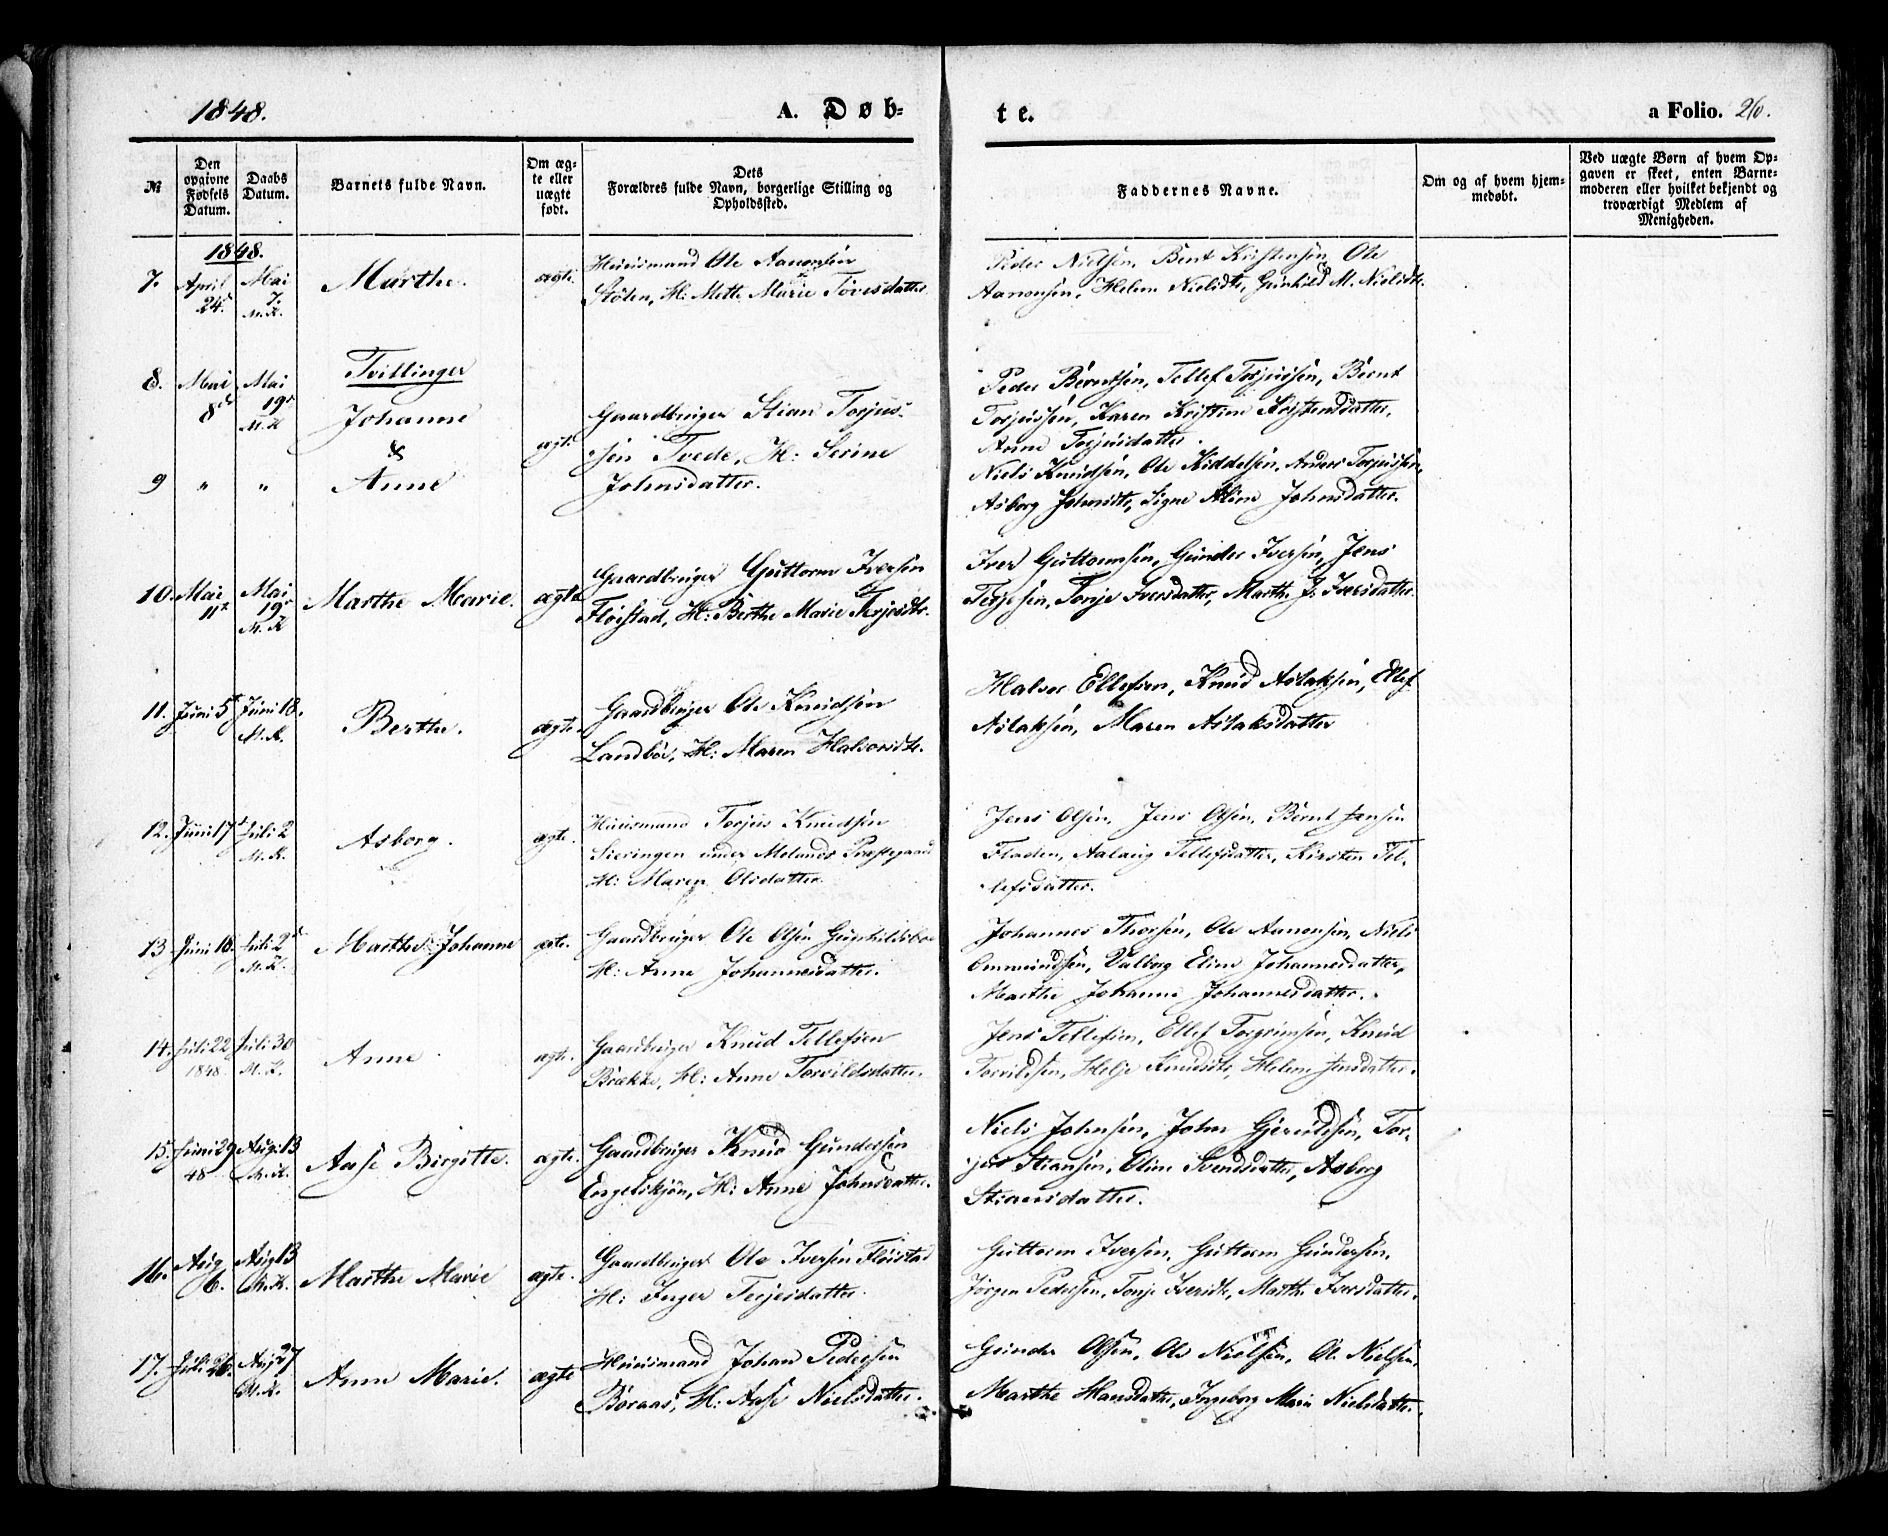 1848. A. Døb= te. a Folio. 26.
№ Den opgivne Fødsels Datum. Daabs Datum. Barnets fulde Navn. Om ægte eller uægte født. Dets Forældres fulde Navn, borgerlige Stilling og Opholdssted. Faddernes Navne. Om og af hvem hjemmedøbt. Ved uægte Børn af hvem Opgaven er skeet, enten Barnemoderen eller hvilket bekjendt og troværdigt Medlem af Menigheden.
1848.
7. April 24de Mai 7. M. K. Marthe. ægte. Huusmand Ole Aanonsen
Støten, H: Mette Marie Tovesdatter.
Peder Nielsen, Bent Kristensen, Ole
Aanonsen, Helene Nielsdtr, Gunhild M. Nielsdtr.
8. Mai 8de Mai 19de M. K. Tvillinger
Johanne
&
9 " " Anne
ægte Gaardbruger Stian Torjus-
sen Tvede, H: Serine
Johnsdatter.
Peder Berntsen, Tellef Torjussen, Bernt
Torjussen, Karen Kristine Kristensdatter,
Anne Torjusdatter.
Niels Knudsen, Ole Kiddelsen, Anders Torjussen,
Asborg Johnsdtr, Signe Aline Johnsdatter.
10. Mai 11te Mai 19de M. K. Marthe Marie. ægte Gaardbruger Guttorm Iversen
Fløistad, H: Berthe Marie Terjesdtr.
Iver Guttormsen, Gunder Iversen, Jens
Terjesen, Tonje Iversdatter, Marthe J. Iversdatter.
11. Juni 5te Juni 18. M. K. Berthe. ægte. Gaardbruger Ole Knudsen
Landbøe, H: Maren Halvorsdtr.
Halvor Ellefsen, Knud Aslaksen, Ellef
Aslaksen, Maren Aslaksdatter
12. Juni 17de Juli 2 M. K. Asborg. ægte. Huusmand Torjus Knudsen
Sieringen under Molands Præstegaard
H: Maren Olsdatter.
Jens Olsen, Jens Olsen, Bernt Jensen
Fladen, Aalaug Tellefsdatter, Kirsten Tel-
lefsdatter.
13. Juni 18. Juli 2de M. K. Marthe Johanne ægte. Gaardbruger Ole Olsen Gunhildsboe
H: Anne Johannesdatter.
Johannes Thorsen, Ole Aanonsen, Niels
Ommundsen, Valborg Eline Johannesdatter,
Marthe Johanne Johannesdatter.
14. Juli 22 1848. Juli 30 M. K. Anne ægte. Gaardbruger Knud Tellefsen
Brække, H: Anne Torvildsdatter.
Jens Tellefsen, Ellef Torgrimsen, Knud
Torvildsen, Helje Knudsdtr, Helene Jensdatter.
15. Juni 29 48 Aug. 13 M. K. Aase Birgitte. ægte. Gaardbruger Knud Gundersen
Engelskjøn, H: Anne Johnsdatter.
Niels Johnsen, John Gjerulsen, Tor-
jus Stiansen, Eline Svendsdatter, Asborg
Stiansdatter.
16. Aug 6. Aug. 13 M. K. Marthe Marie ægte. Gaardbruger Ole Iversen Fløistad
H: Inger Terjesdatter.
Guttorm Iversen, Guttorm Gundersen,
Jørgen Pedersen, Tonje Iversdtr, Marthe Iversdatter.
17. Juli 26. Aug 27 M. K. Anne Marie. ægte Huusmand Johan Pedersen
Boraas, H: Aase Nielsdatter.
Gunder Olsen, Ole Nielsen, O. Nielsen,
Marthe Hansdatter, Ingeborg Marie Nielsdatter.